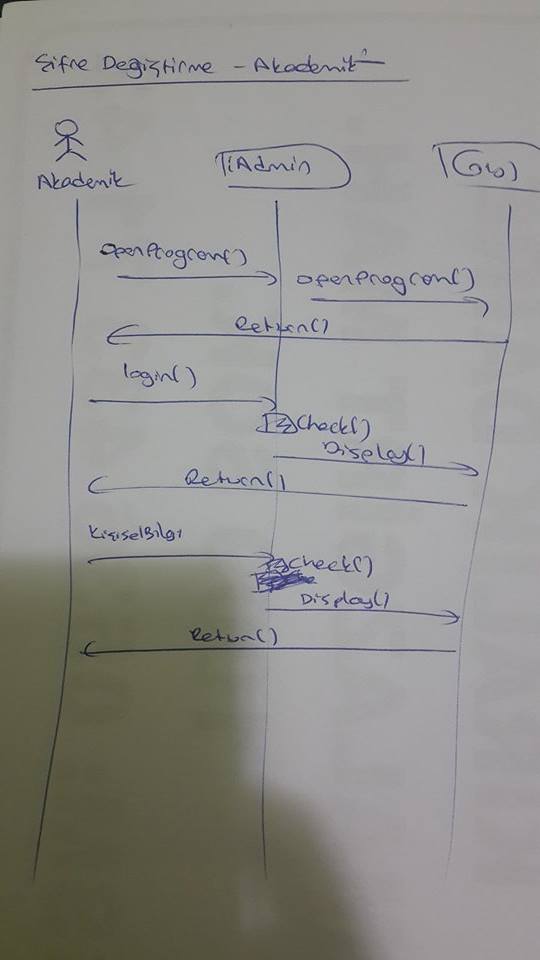 Şifre Değiştirme - Akademik
Akademik
openProgram()
openProgram()
Return()
login()
Check()
Display()
Return()
KişiselBilgi
Check()
Display()
Return()